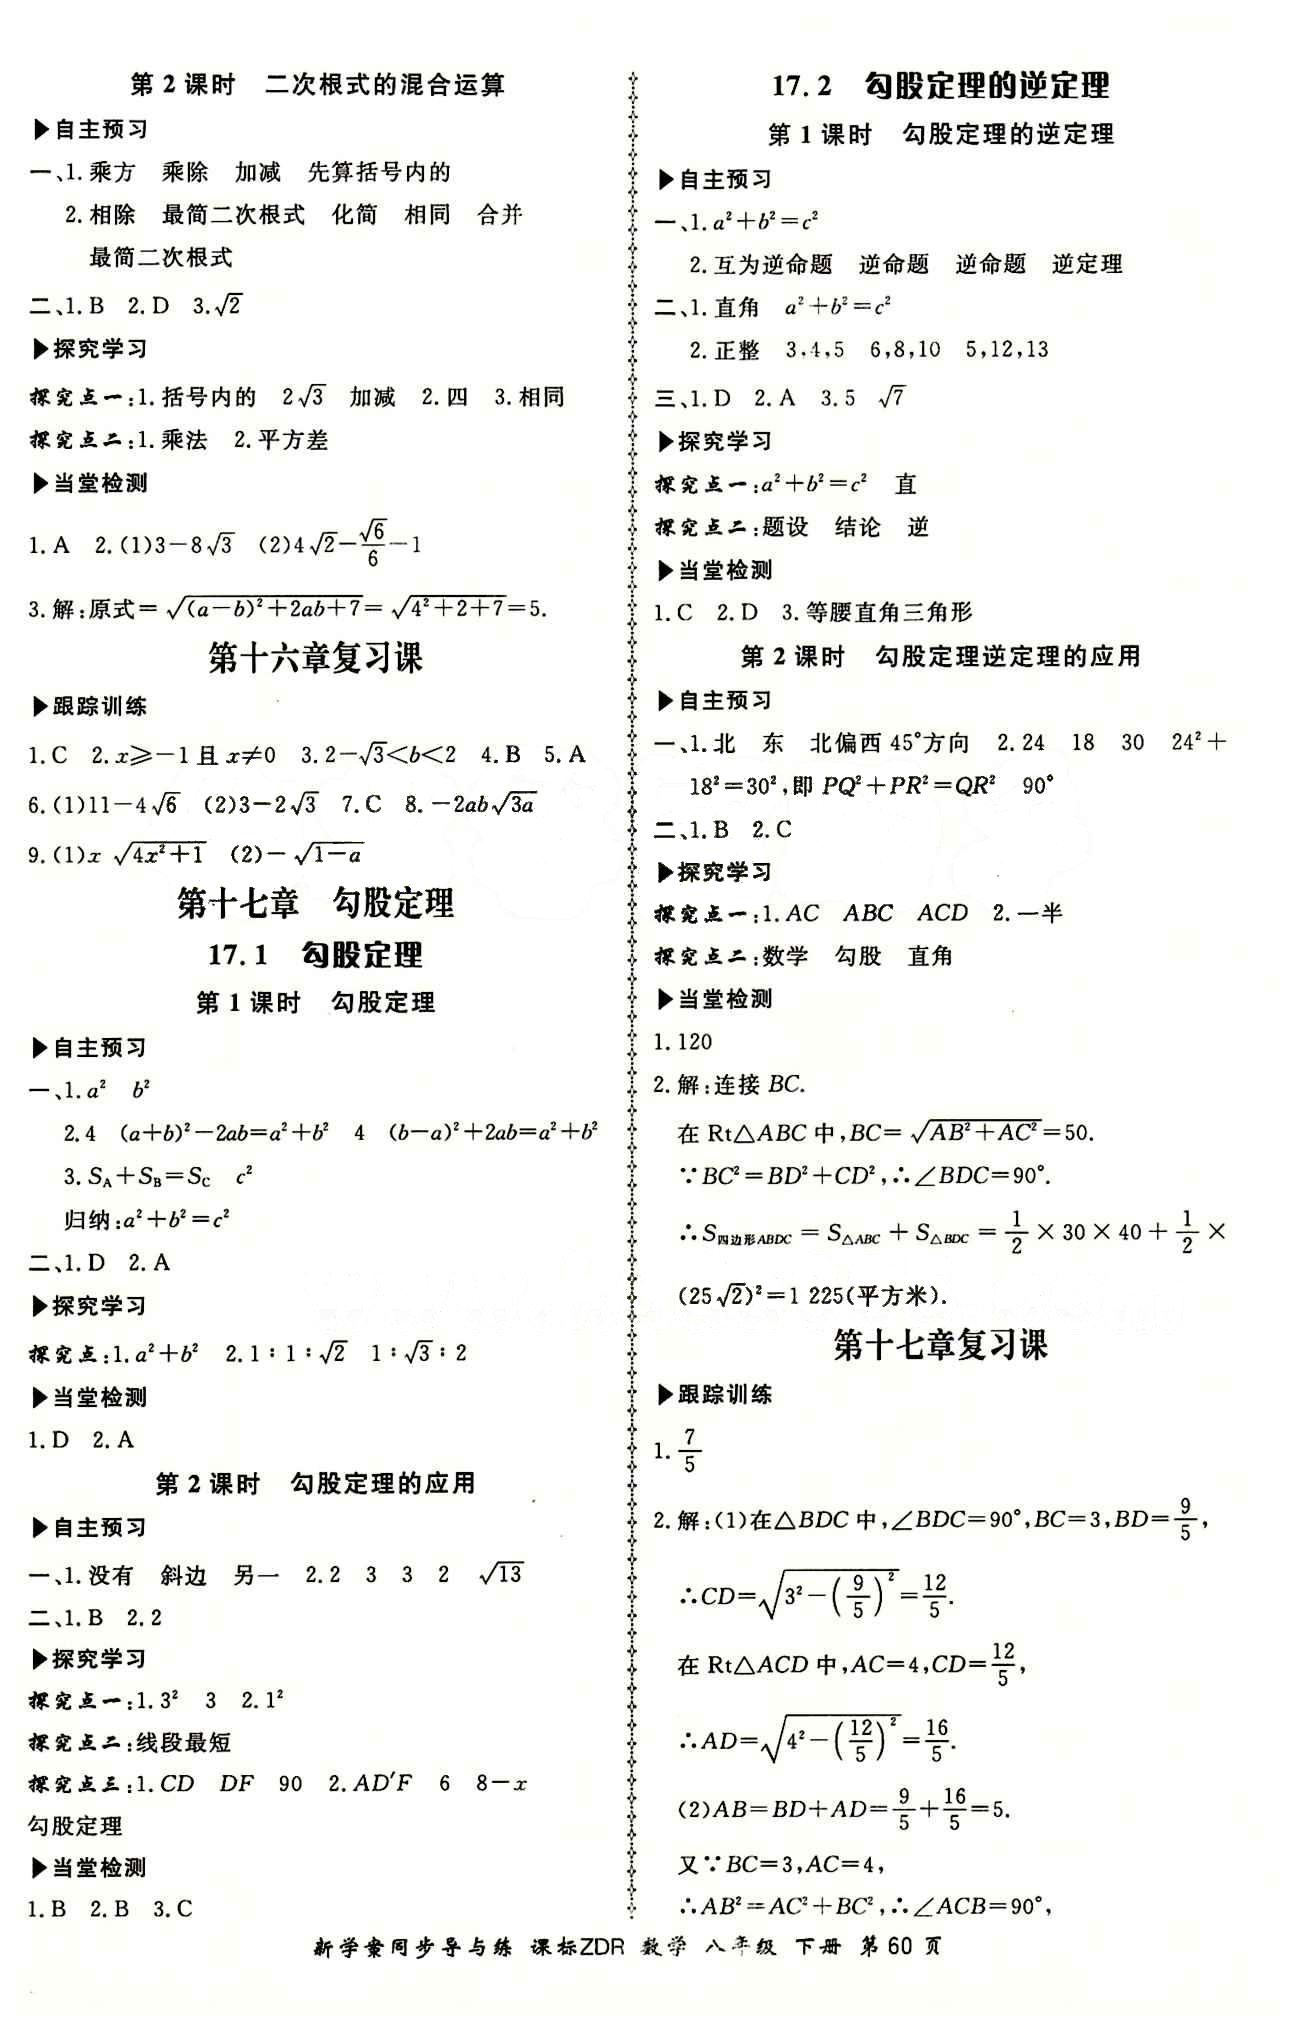 第 2 课时　二次根式的混合运算
▶自主预习
一、1. 乘方　乘除　加减　先算括号内的
2. 相除　最简二次根式　化简　相同　合并
最简二次根式
二、1. B　2. D　3. √2
▶探究学习
探究点一:1. 括号内的　2√3　加减　2. 四　3. 相同
探究点二:1. 乘法　2. 平方差
▶当堂检测
1. A　2. (1)3－8√3　(2)4√2－√6/6－1
3. 解:原式＝√((a－b)²＋2ab＋7)＝√(4²＋2＋7)＝5.
第十六章复习课
▶跟踪训练
1. C　2. x≥－1 且 x≠0　3. 2－√3＜b＜2　4. B　5. A
6. (1)11－4√6　(2)3－2√3　7. C　8. －2ab√(3a)
9. (1)x √(4x²＋1)　(2)－√(1－a)
第十七章　勾股定理
17. 1　勾股定理
第 1 课时　勾股定理
▶自主预习
一、1. a²　b²
2. 4　(a＋b)²－2ab＝a²＋b²　4　(b－a)²＋2ab＝a²＋b²
3. S_A＋S_B＝S_C　c²
归纳:a²＋b²＝c²
二、1. D　2. A
▶探究学习
探究点:1. a²＋b²　2. 1∶1∶√2　1∶√3∶2
▶当堂检测
1. D　2. A
第 2 课时　勾股定理的应用
▶自主预习
一、1. 没有　斜边　另一　2. 2　3　3　2　√13
二、1. B　2. 2
▶探究学习
探究点一:1. 3²　3　2. 1²
探究点二:线段最短
探究点三:1. CD　DF　90　2. AD′F　6　8－x
勾股定理
▶当堂检测
1. B　2. B　3. C
17. 2　勾股定理的逆定理
第 1 课时　勾股定理的逆定理
▶自主预习
一、1. a²＋b²＝c²
2. 互为逆命题　逆命题　逆命题　逆定理
二、1. 直角　a²＋b²＝c²
2. 正整　3,4,5　6,8,10　5,12,13
三、1. D　2. A　3. 5　√7
▶探究学习
探究点一:a²＋b²＝c²　直
探究点二:题设　结论　逆
▶当堂检测
1. C　2. D　3. 等腰直角三角形
第 2 课时　勾股定理逆定理的应用
▶自主预习
一、1. 北　东　北偏西 45°方向　2. 24　18　30　24²＋
18²＝30²,即 PQ²＋PR²＝QR²　90°
二、1. B　2. C
▶探究学习
探究点一:1. AC　ABC　ACD　2. 一半
探究点二:数学　勾股　直角
▶当堂检测
1. 120
2. 解:连接 BC.
在 Rt△ABC 中,BC＝√(AB²＋AC²)＝50.
∵BC²＝BD²＋CD²,∴∠BDC＝90°.
∴S四边形ABDC＝S△ABC＋S△BDC＝1/2×30×40＋1/2×
(25√2)²＝1 225(平方米).
第十七章复习课
▶跟踪训练
1. 7/5
2. 解:(1)在△BDC 中,∠BDC＝90°,BC＝3,BD＝9/5,
∴CD＝√(3²－(9/5)²)＝12/5.
在 Rt△ACD 中,AC＝4,CD＝12/5,
∴AD＝√(4²－(12/5)²)＝16/5.
(2)AB＝BD＋AD＝9/5＋16/5＝5.
又∵BC＝3,AC＝4,
∴AB²＝AC²＋BC²,∴∠ACB＝90°,
新学案同步导与练　课标ZDR　数学　八年级　下册　第 60 页